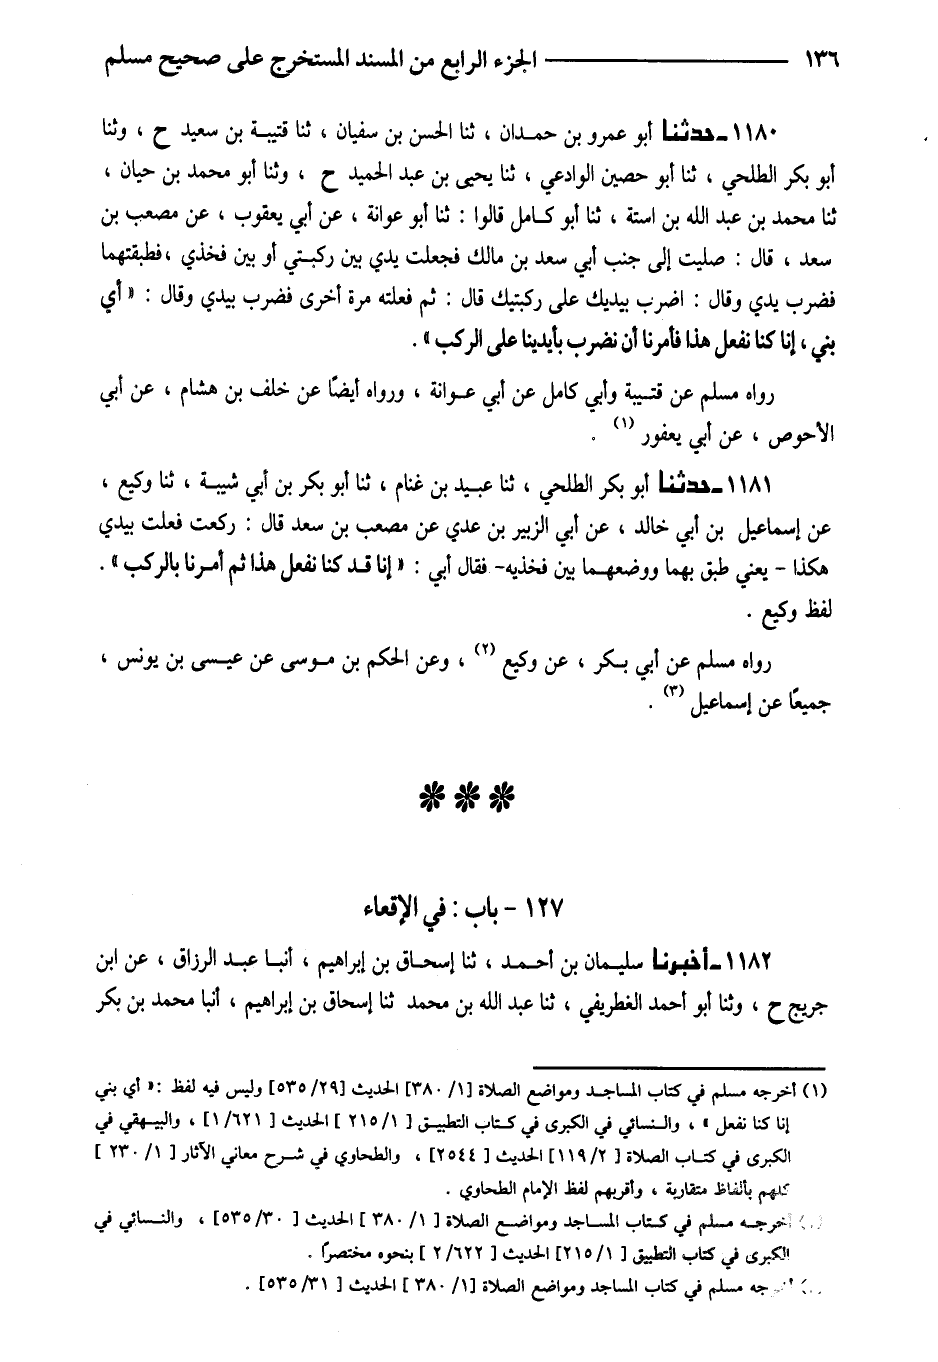 ١٣٦ ــــــــــ الجزء الرابع من المسند المستخرج على صحيح مسلم
١١٨٠ـ حدثنا أبو عمرو بن حمدان ، ثنا الحسن بن سفيان ، ثنا قتيبة بن سعيد ح ، وثنا
أبو بكر الطلحي ، ثنا أبو حصين الوادعي ، ثنا يحيى بن عبد الحميد ح ، وثنا أبو محمد بن حيان ،
ثنا محمد بن عبد الله بن استة ، ثنا أبو كامل قالوا : ثنا أبو عوانة ، عن أبي يعقوب ، عن مصعب بن
سعد ، قال : صليت إلى جنب أبي سعد بن مالك فجعلت يدي بين ركبتي أو بين فخذي ،فطبقتهما
فضرب يدي وقال : اضرب بيديك على ركبتيك قال : ثم فعلته مرة أخرى فضرب بيدي وقال : « أي
بني ، إنا كنا نفعل هذا فأمرنا أن نضرب بأيدينا على الركب » .
رواه مسلم عن قتيبة وأبي كامل عن أبي عوانة ، ورواه أيضًا عن خلف بن هشام ، عن أبي
الأحوص ، عن أبي يعفور (١) .
١١٨١ـ حدثنا أبو بكر الطلحي ، ثنا عبيد بن غنام ، ثنا أبو بكر بن أبي شيبة ، ثنا وكيع ،
عن إسماعيل بن أبي خالد ، عن أبي الزبير بن عدي عن مصعب بن سعد قال : ركعت فعلت بيدي
هكذا - يعني طبق بهما ووضعهما بين فخذيه- فقال أبي : « إنا قد كنا نفعل هذا ثم أمرنا بالركب » .
لفظ وكيع .
رواه مسلم عن أبي بكر ، عن وكيع (٢) ، وعن الحكم بن موسى عن عيسى بن يونس ،
جميعًا عن إسماعيل (٣) .
١٢٧ - باب : في الإقعاء
١١٨٢ـ أخبرنا سليمان بن أحمد ، ثنا إسحاق بن إبراهيم ، أنبا عبد الرزاق ، عن ابن
جريج ح ، وثنا أبو أحمد الغطريفي ، ثنا عبد الله بن محمد ثنا إسحاق بن إبراهيم ، أنبا محمد بن بكر
(١) أخرجه مسلم في كتاب المساجد ومواضع الصلاة [١/ ٣٨٠] الحديث [٢٩/ ٥٣٥] وليس فيه لفظ :« أي بني
إنا كنا نفعل » ، والنسائي في الكبرى في كتاب التطبيق [ ١/ ٢١٥ ] الحديث [ ٦٢١/ ١] ، والبيهقي في
الكبرى في كتاب الصلاة [ ٢/ ١١٩] الحديث [ ٢٥٤٤] ، والطحاوي في شرح معاني الآثار [ ١/ ٢٣٠ ]
كلهم بألفاظ متقاربة ، وأقربهم لفظ الإمام الطحاوي .
أخرجه مسلم في كتاب المساجد ومواضع الصلاة [ ١/ ٣٨٠ ] الحديث [ ٣٠/ ٥٣٥] ، والنسائي في
الكبرى في كتاب التطبيق [ ١/ ٢١٥] الحديث [ ٦٢٢/ ٢ ] بنحوه مختصرًا .
أخرجه مسلم في كتاب المساجد ومواضع الصلاة [١/ ٣٨٠ ] الحديث [ ٣١/ ٥٣٥] .